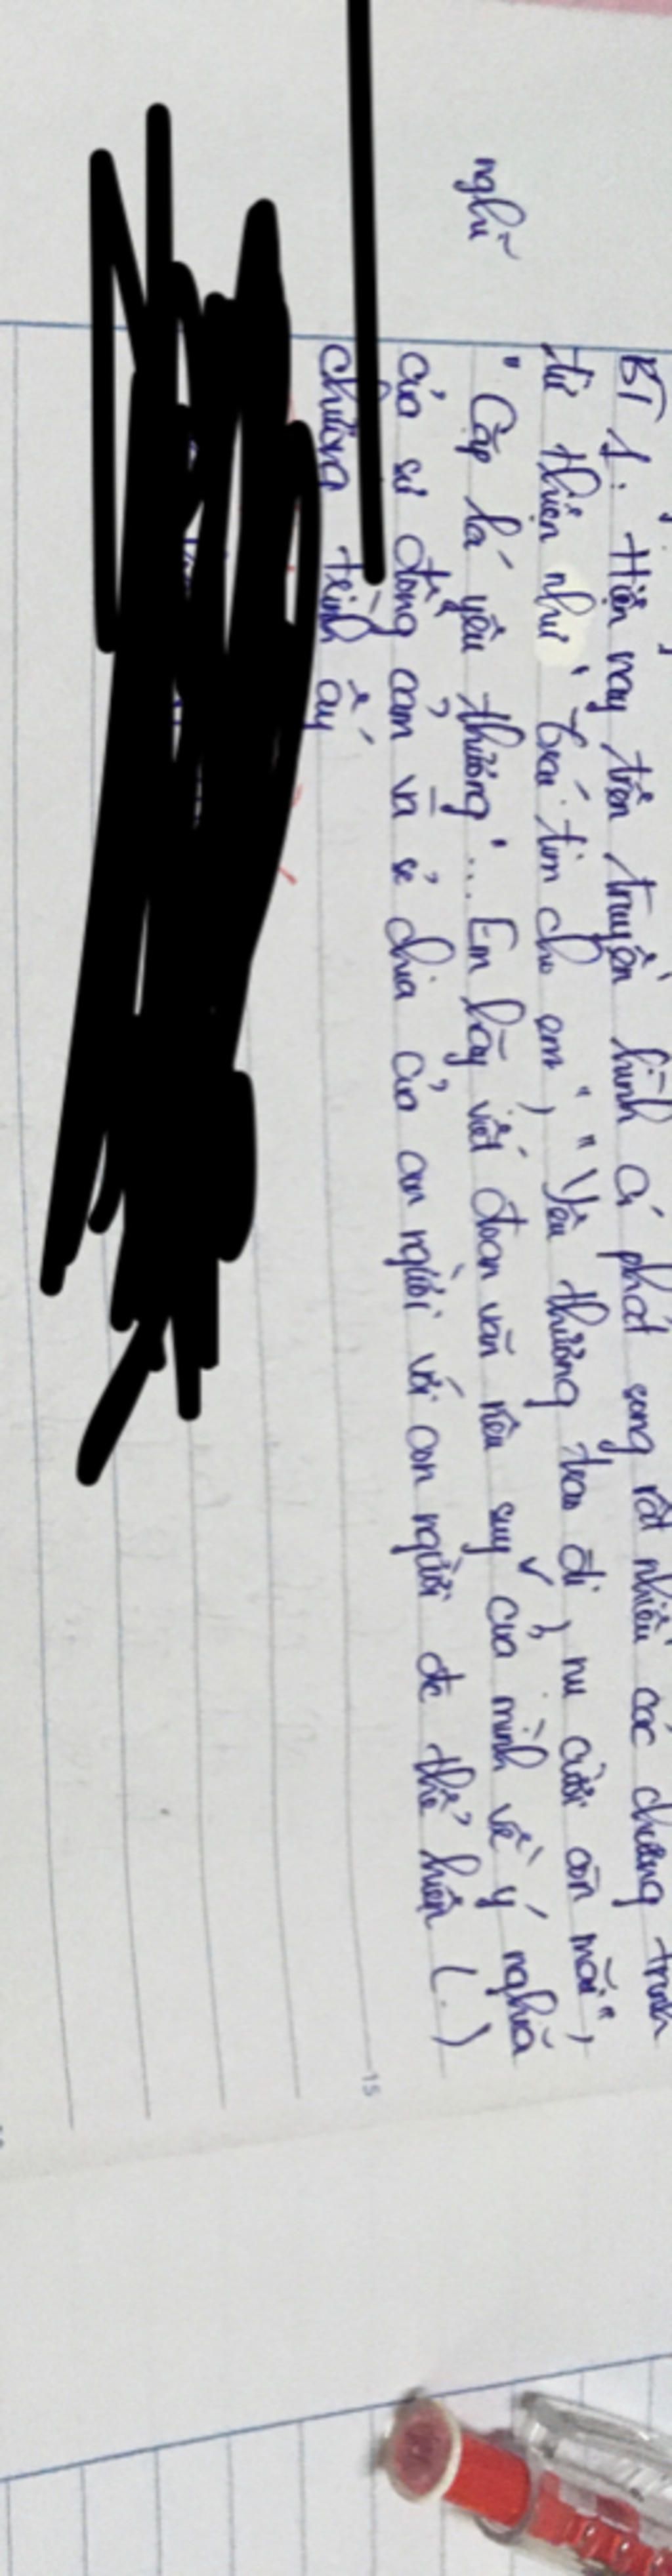 BT 1: Hiện nay trên truyền hình có phát sóng rất nhiều các chương trình
từ thiện như "Trái tim cho em", "Yêu thương trao đi, nụ cười còn mãi",
"Cặp lá yêu thương"... Em hãy viết đoạn văn nêu suy ˅ của mình về ý nghĩa
nghĩ
của sự đồng cảm và sẻ chia của con người với con người đc thể hiện (.)
chương trình ấy
15